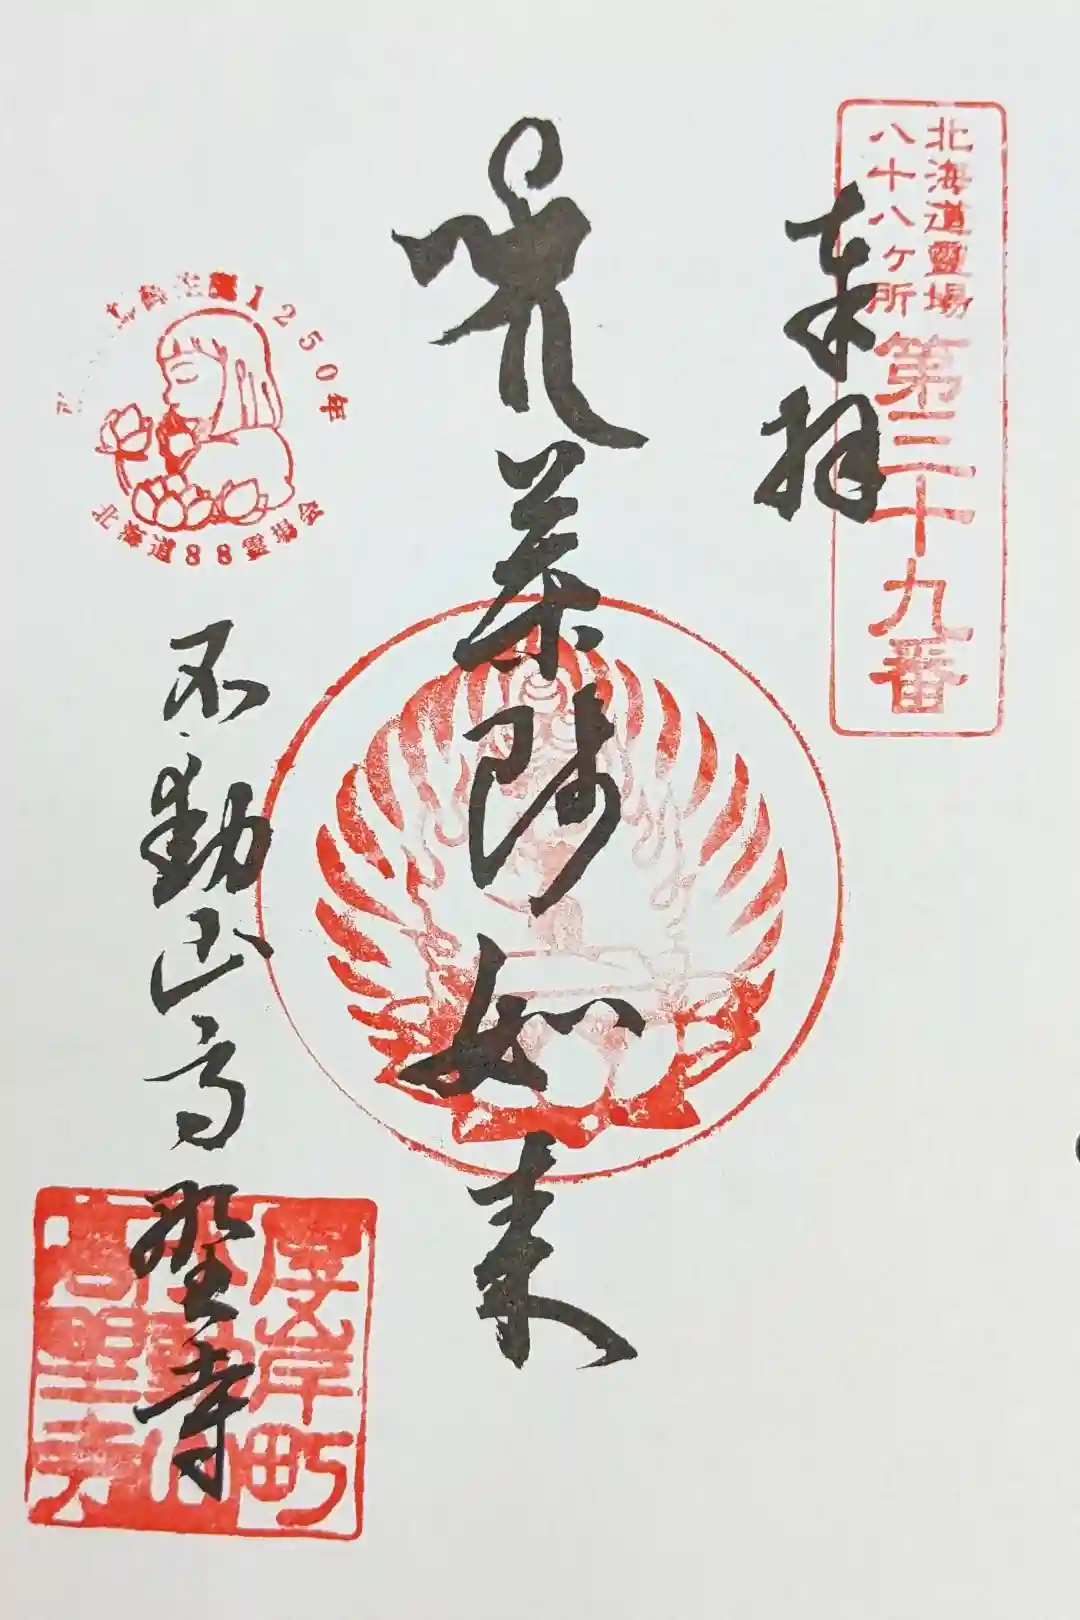 北海道霊場
八十八ヶ所
第三十九番
奉拝
薬師如来
生誕1250年
北海道88霊場会
不動山高聖寺
厚岸町
不動山
高聖寺